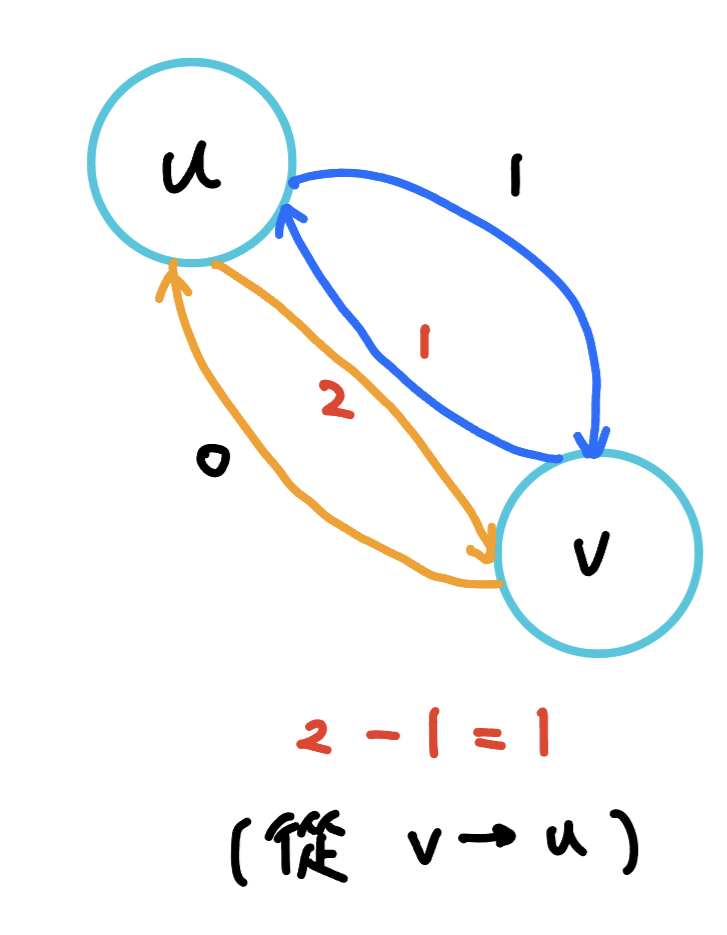 u
1
1
2
0
v
2 - 1 = 1
(從 v → u)